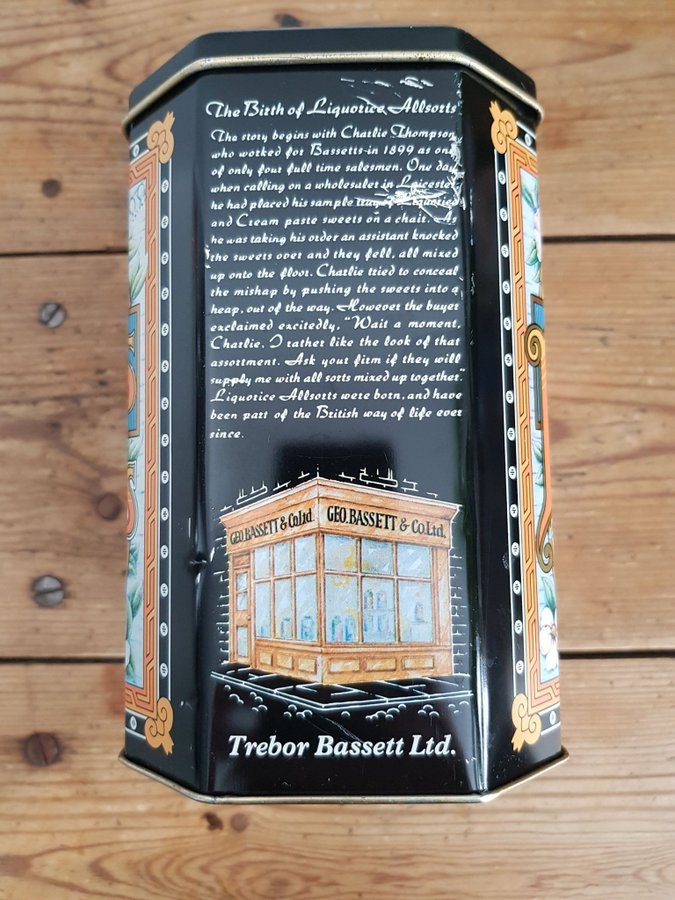 The Birth of Liquorice Allsorts
The story begins with Charlie Thompson,
who worked for Bassetts in 1899 as one
of only four full time salesmen. One day
when calling on a wholesaler in Leicester
he had placed his sample tray of Liquorice
and Cream paste sweets on a chair. As
he was taking his order an assistant knocked
the sweets over and they fell, all mixed
up onto the floor. Charlie tried to conceal
the mishap by pushing the sweets into a
heap, out of the way. However the buyer
exclaimed excitedly, "Wait a moment,
Charlie. I rather like the look of that
assortment. Ask your firm if they will
supply me with all sorts mixed up together."
Liquorice Allsorts were born, and have
been part of the British way of life ever
since.
GEO. BASSETT & Co. Ltd. GEO. BASSETT & Co. Ltd.
Trebor Bassett Ltd.